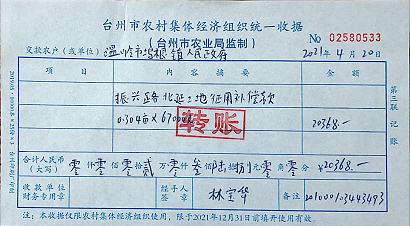 台州市农村集体经济组织统一收据
（台州市农业局监制）
No 02580533
交款农户（或单位） 温岭市坞根镇人民政府 2021年4月20日
项目 内容摘要 金额
振兴西路北延土地征用补偿款
0.304亩×67000 20368.-
转账
合计人民币（大写） 零仟零佰零拾贰万零仟叁佰陆拾捌元零角零分 ¥20368.-
收款单位财务专用章 经手人签章 林宝华 备注 201000103443493
注：本收据仅限农村集体经济组织使用，限于2021年12月31日前填开使用有效。
第三联 记账